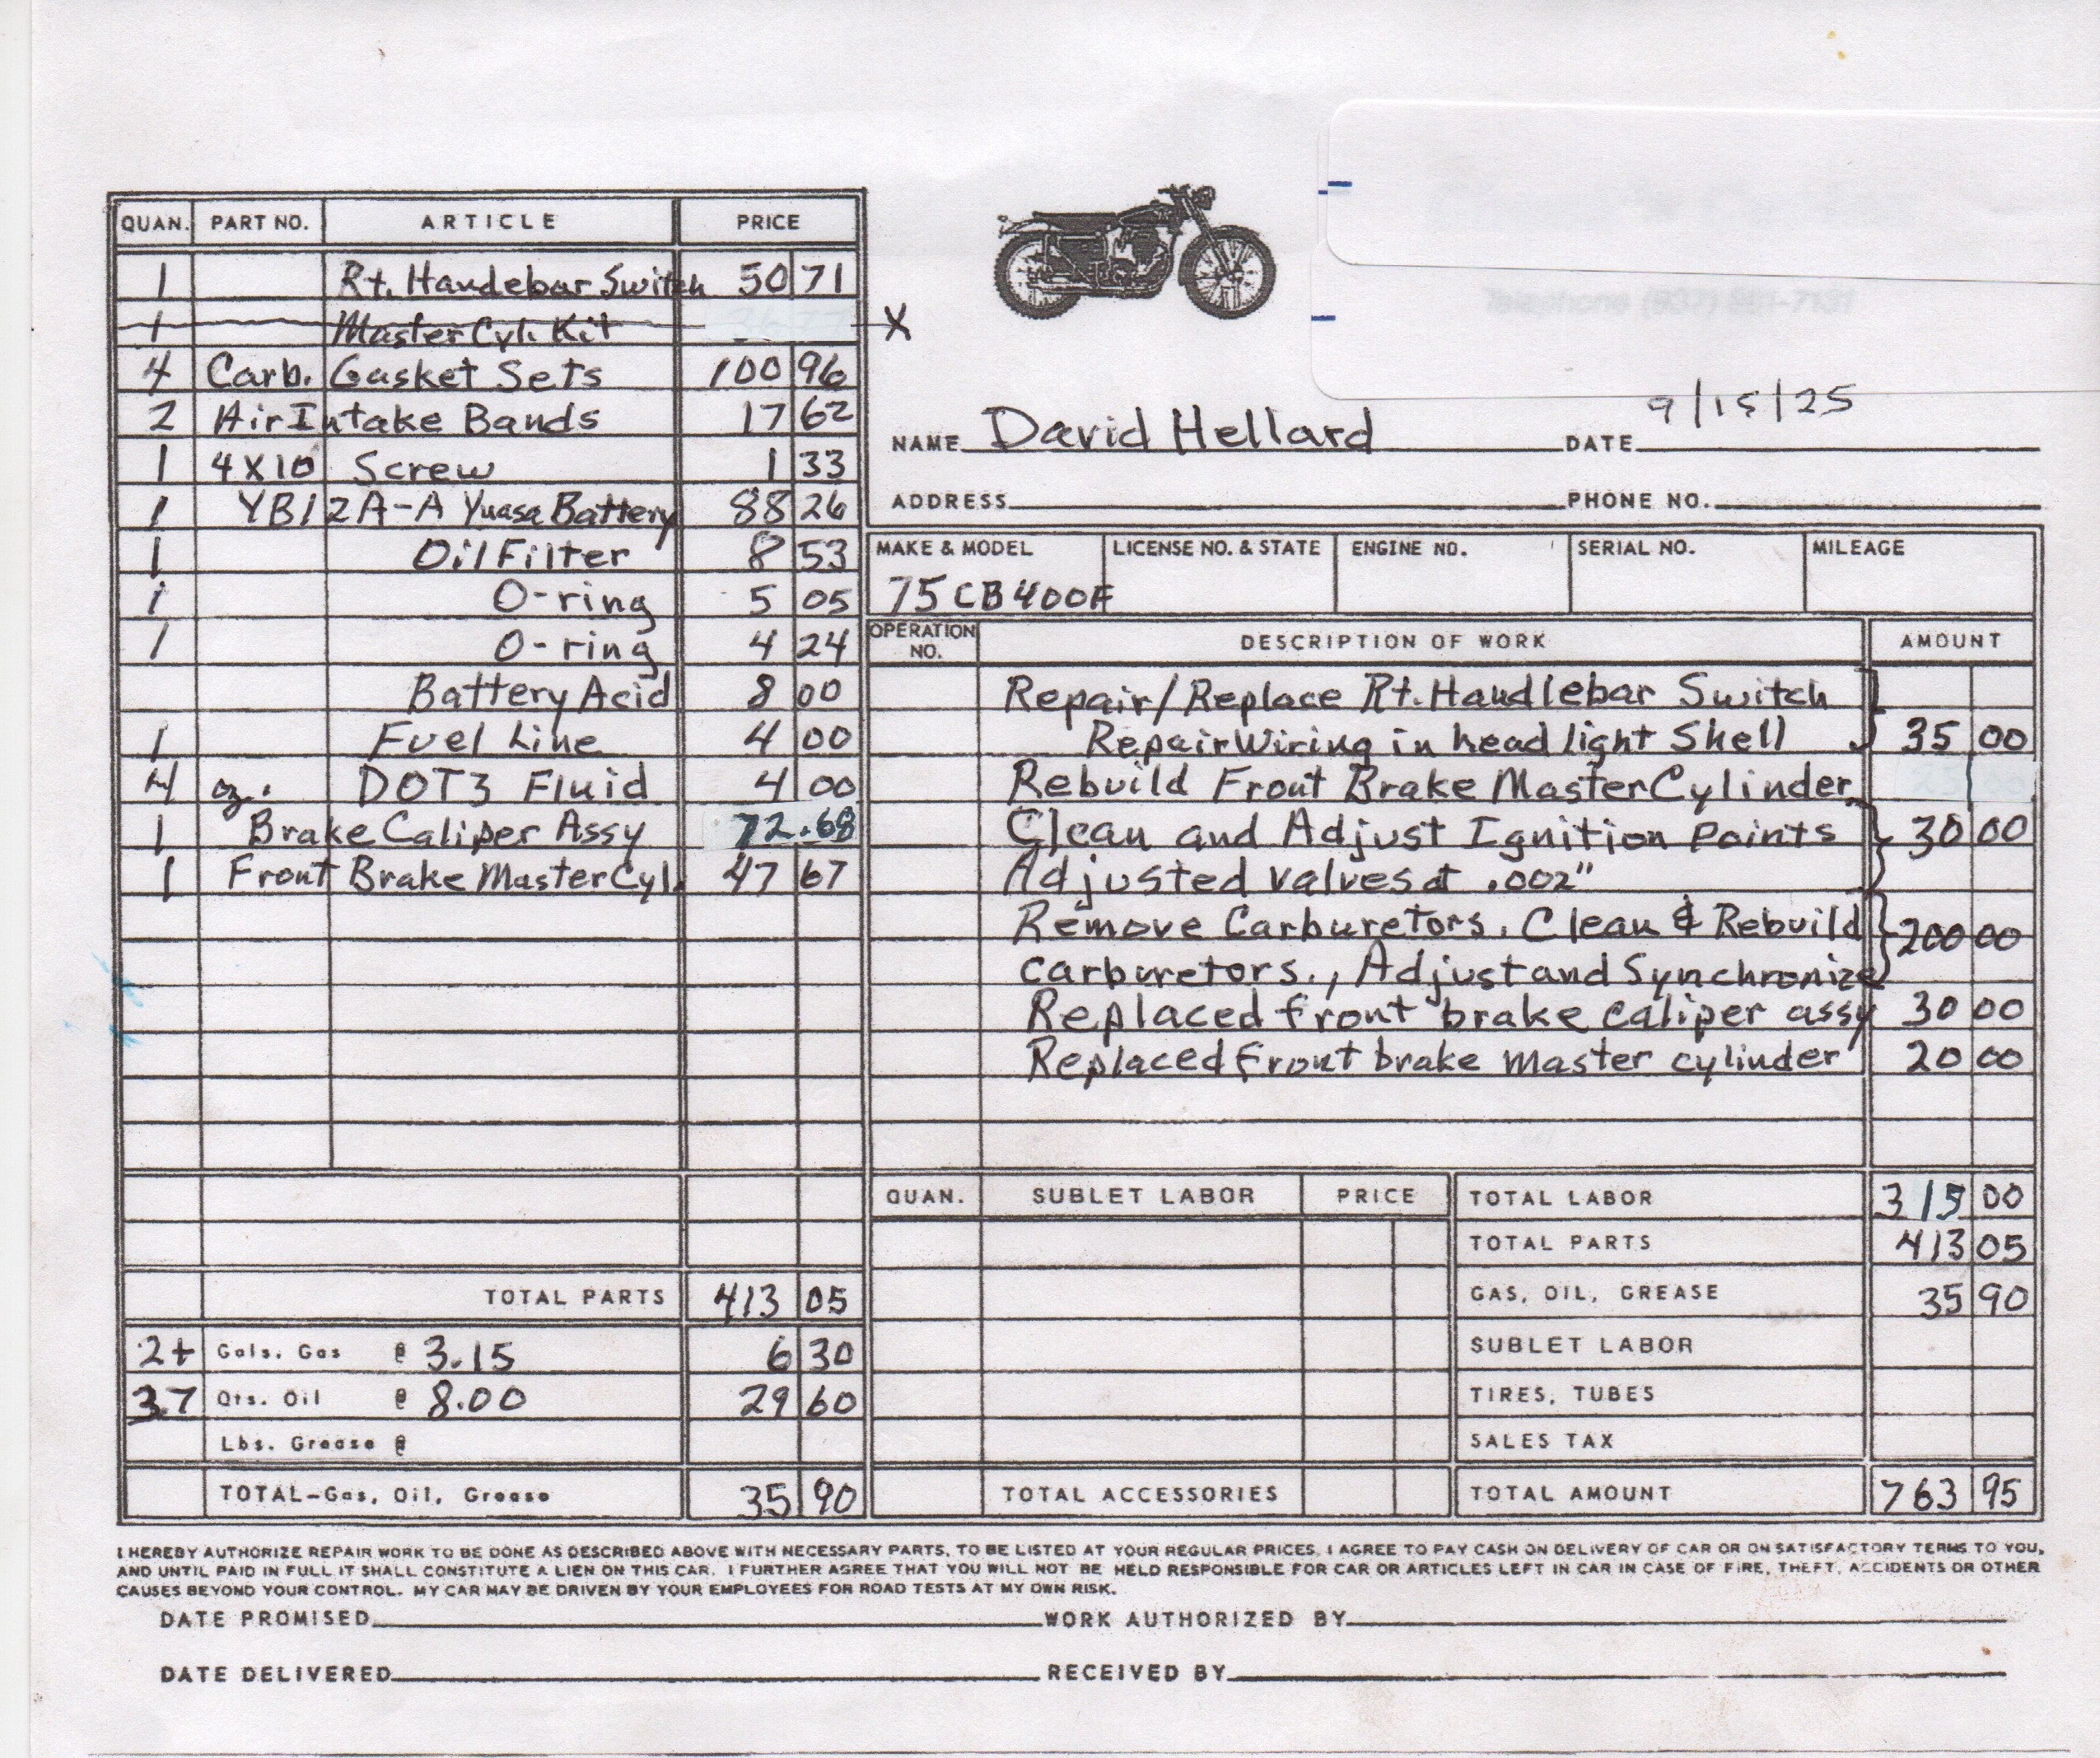 QUAN. PART NO. ARTICLE PRICE
1 Rt. Handebar Switch 50 71
1 Master Cyl. Kit X
4 Carb. Gasket Sets 100 96
2 Air Intake Bands 17 62
1 4X10 Screw 1 33
1 YB12A-A Yuasa Battery 88 26
1 Oil Filter 8 53
1 O-ring 5 05
1 O-ring 4 24
Battery Acid 8 00
1 Fuel Line 4 00
4 oz. DOT3 Fluid 4 00
1 Brake Caliper Assy 72.68
1 Front Brake Master Cyl. 47 67
TOTAL PARTS 413 05
2+ Gals. Gas @ 3.15 6 30
3.7 Qts. Oil @ 8.00 29 60
Lbs. Grease @
TOTAL-Gas, Oil, Grease 35 90
NAME David Hellard DATE 9/15/25
ADDRESS PHONE NO.
MAKE & MODEL LICENSE NO. & STATE ENGINE NO. SERIAL NO. MILEAGE
75 CB400F
OPERATION NO. DESCRIPTION OF WORK AMOUNT
Repair/Replace Rt. Handlebar Switch
Repair Wiring in head light Shell 35 00
Rebuild Front Brake Master Cylinder
Clean and Adjust Ignition Points 30 00
Adjusted valves at .002"
Remove Carburetors. Clean & Rebuild 200 00
carburetors., Adjust and Synchronize
Replaced front brake caliper assy 30 00
Replaced front brake master cylinder 20 00
QUAN. SUBLET LABOR PRICE
TOTAL ACCESSORIES
TOTAL LABOR 315 00
TOTAL PARTS 413 05
GAS, OIL, GREASE 35 90
SUBLET LABOR
TIRES, TUBES
SALES TAX
TOTAL AMOUNT 763 95
I HEREBY AUTHORIZE REPAIR WORK TO BE DONE AS DESCRIBED ABOVE WITH NECESSARY PARTS, TO BE LISTED AT YOUR REGULAR PRICES. I AGREE TO PAY CASH ON DELIVERY OF CAR OR ON SATISFACTORY TERMS TO YOU,
AND UNTIL PAID IN FULL IT SHALL CONSTITUTE A LIEN ON THIS CAR. I FURTHER AGREE THAT YOU WILL NOT BE HELD RESPONSIBLE FOR CAR OR ARTICLES LEFT IN CAR IN CASE OF FIRE, THEFT, ACCIDENTS OR OTHER
CAUSES BEYOND YOUR CONTROL. MY CAR MAY BE DRIVEN BY YOUR EMPLOYEES FOR ROAD TESTS AT MY OWN RISK.
DATE PROMISED WORK AUTHORIZED BY
DATE DELIVERED RECEIVED BY